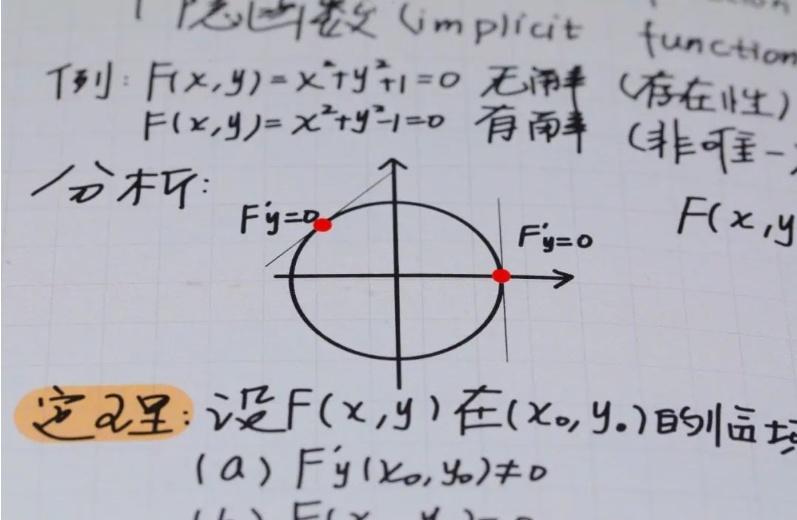 隐函数 (implicit function
例: F(x,y)=x²+y²+1=0 无解 (存在性)
F(x,y)=x²+y²-1=0 有解 (非唯一
分析:
F'y=0
F'y=0
F(x,y
定理: 设F(x,y)在(x₀,y₀)的临域
(a) F'y(x₀,y₀)≠0